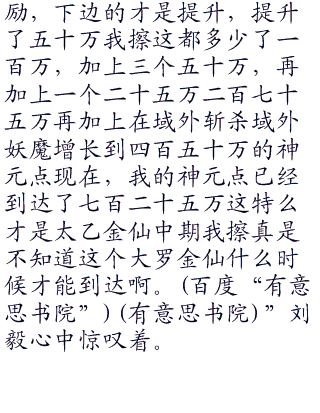 励，下边的才是提升，提升
了五十万我擦这都多少了一
百万，加上三个五十万，再
加上一个二十五万二百七十
五万再加上在域外斩杀域外
妖魔增长到四百五十万的神
元点现在，我的神元点已经
到达了七百二十五万这特么
才是太乙金仙中期我擦真是
不知道这个大罗金仙什么时
候才能到达啊。(百度“有意
思书院”)(有意思书院)”刘
毅心中惊叹着。